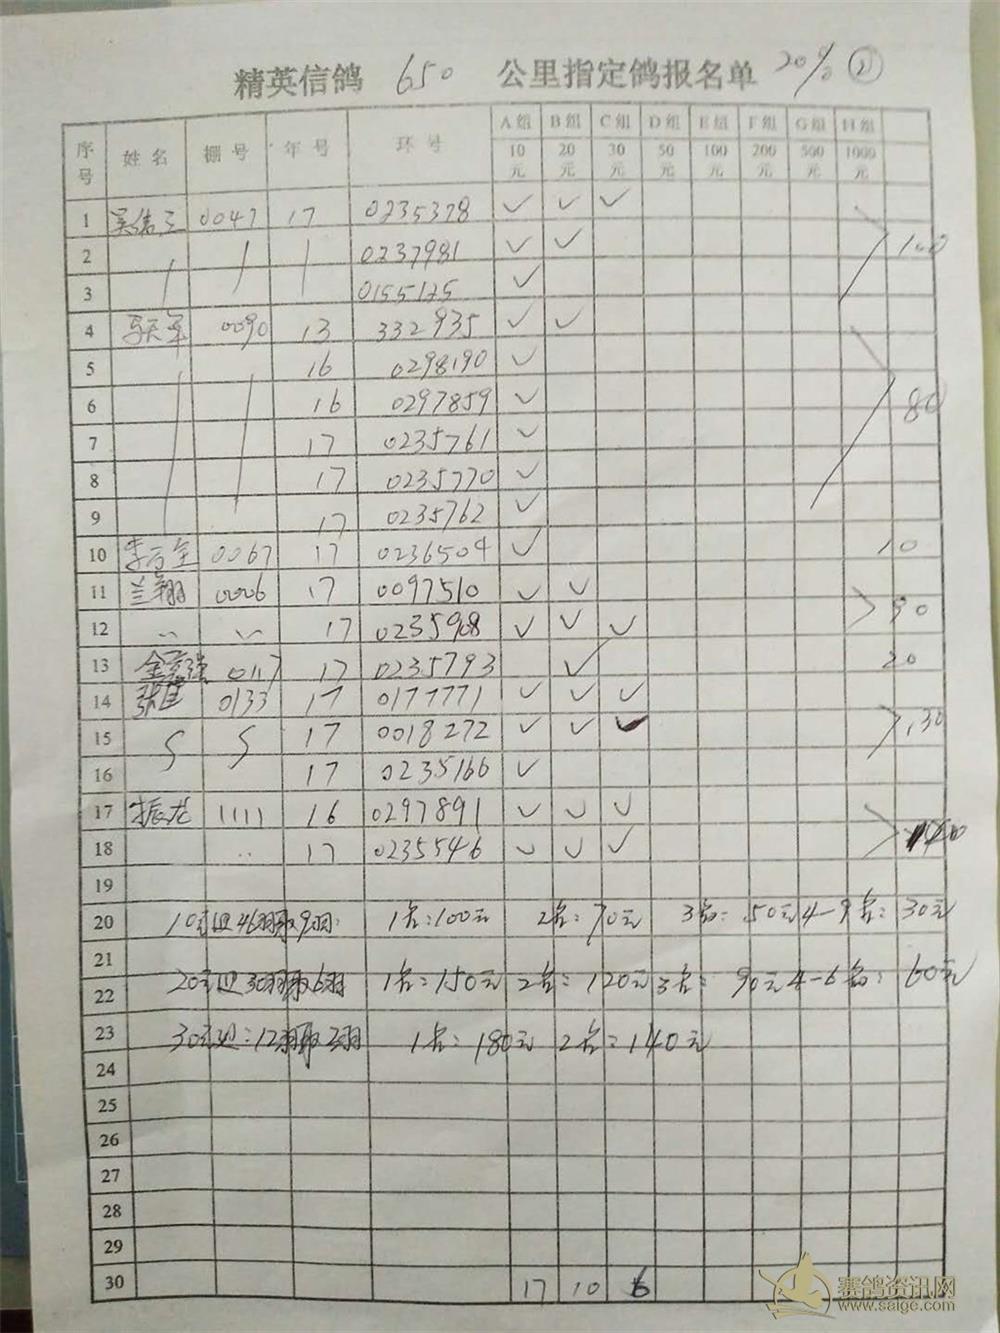 精英信鸽 650 公里指定鸽报名单 20% ②
序号 姓名 棚号 年号 环号 A组 B组 C组 D组 E组 F组 G组 H组
10元 20元 30元 50元 100元 200元 500元 1000元
1 0047 17 0235378 ✓ ✓ ✓
2 0237981 ✓ ✓ 100
3 0155125 ✓
4 0090 13 332935 ✓ ✓
5 16 0298190 ✓
6 16 0297859 ✓ 80
7 17 0235761 ✓
8 17 0235770 ✓
9 17 0235762 ✓
10 0067 17 0236504 ✓ 10
11 兰翔 0006 17 0097510 ✓ ✓
12 17 0235908 ✓ ✓ ✓ 90
13 0117 17 0235793 ✓ 20
14 0133 17 0177771 ✓ ✓ ✓
15 17 0018272 ✓ ✓ ✓ 130
16 17 0235166 ✓
17 振龙 1111 16 0297891 ✓ ✓ ✓
18 17 0235546 ✓ ✓ ✓
19
20 10元组46羽取9羽: 1名:100元 2名:70元 3名:50元 4-9名:30元
21
22 20元组30羽取6羽 1名:150元 2名:120元 3名:90元 4-6名:60元
23 30元组:12羽取2羽 1名:180元 2名:140元
24
25
26
27
28
29
30 17 10 6
赛鸽资讯网
www.saige.com